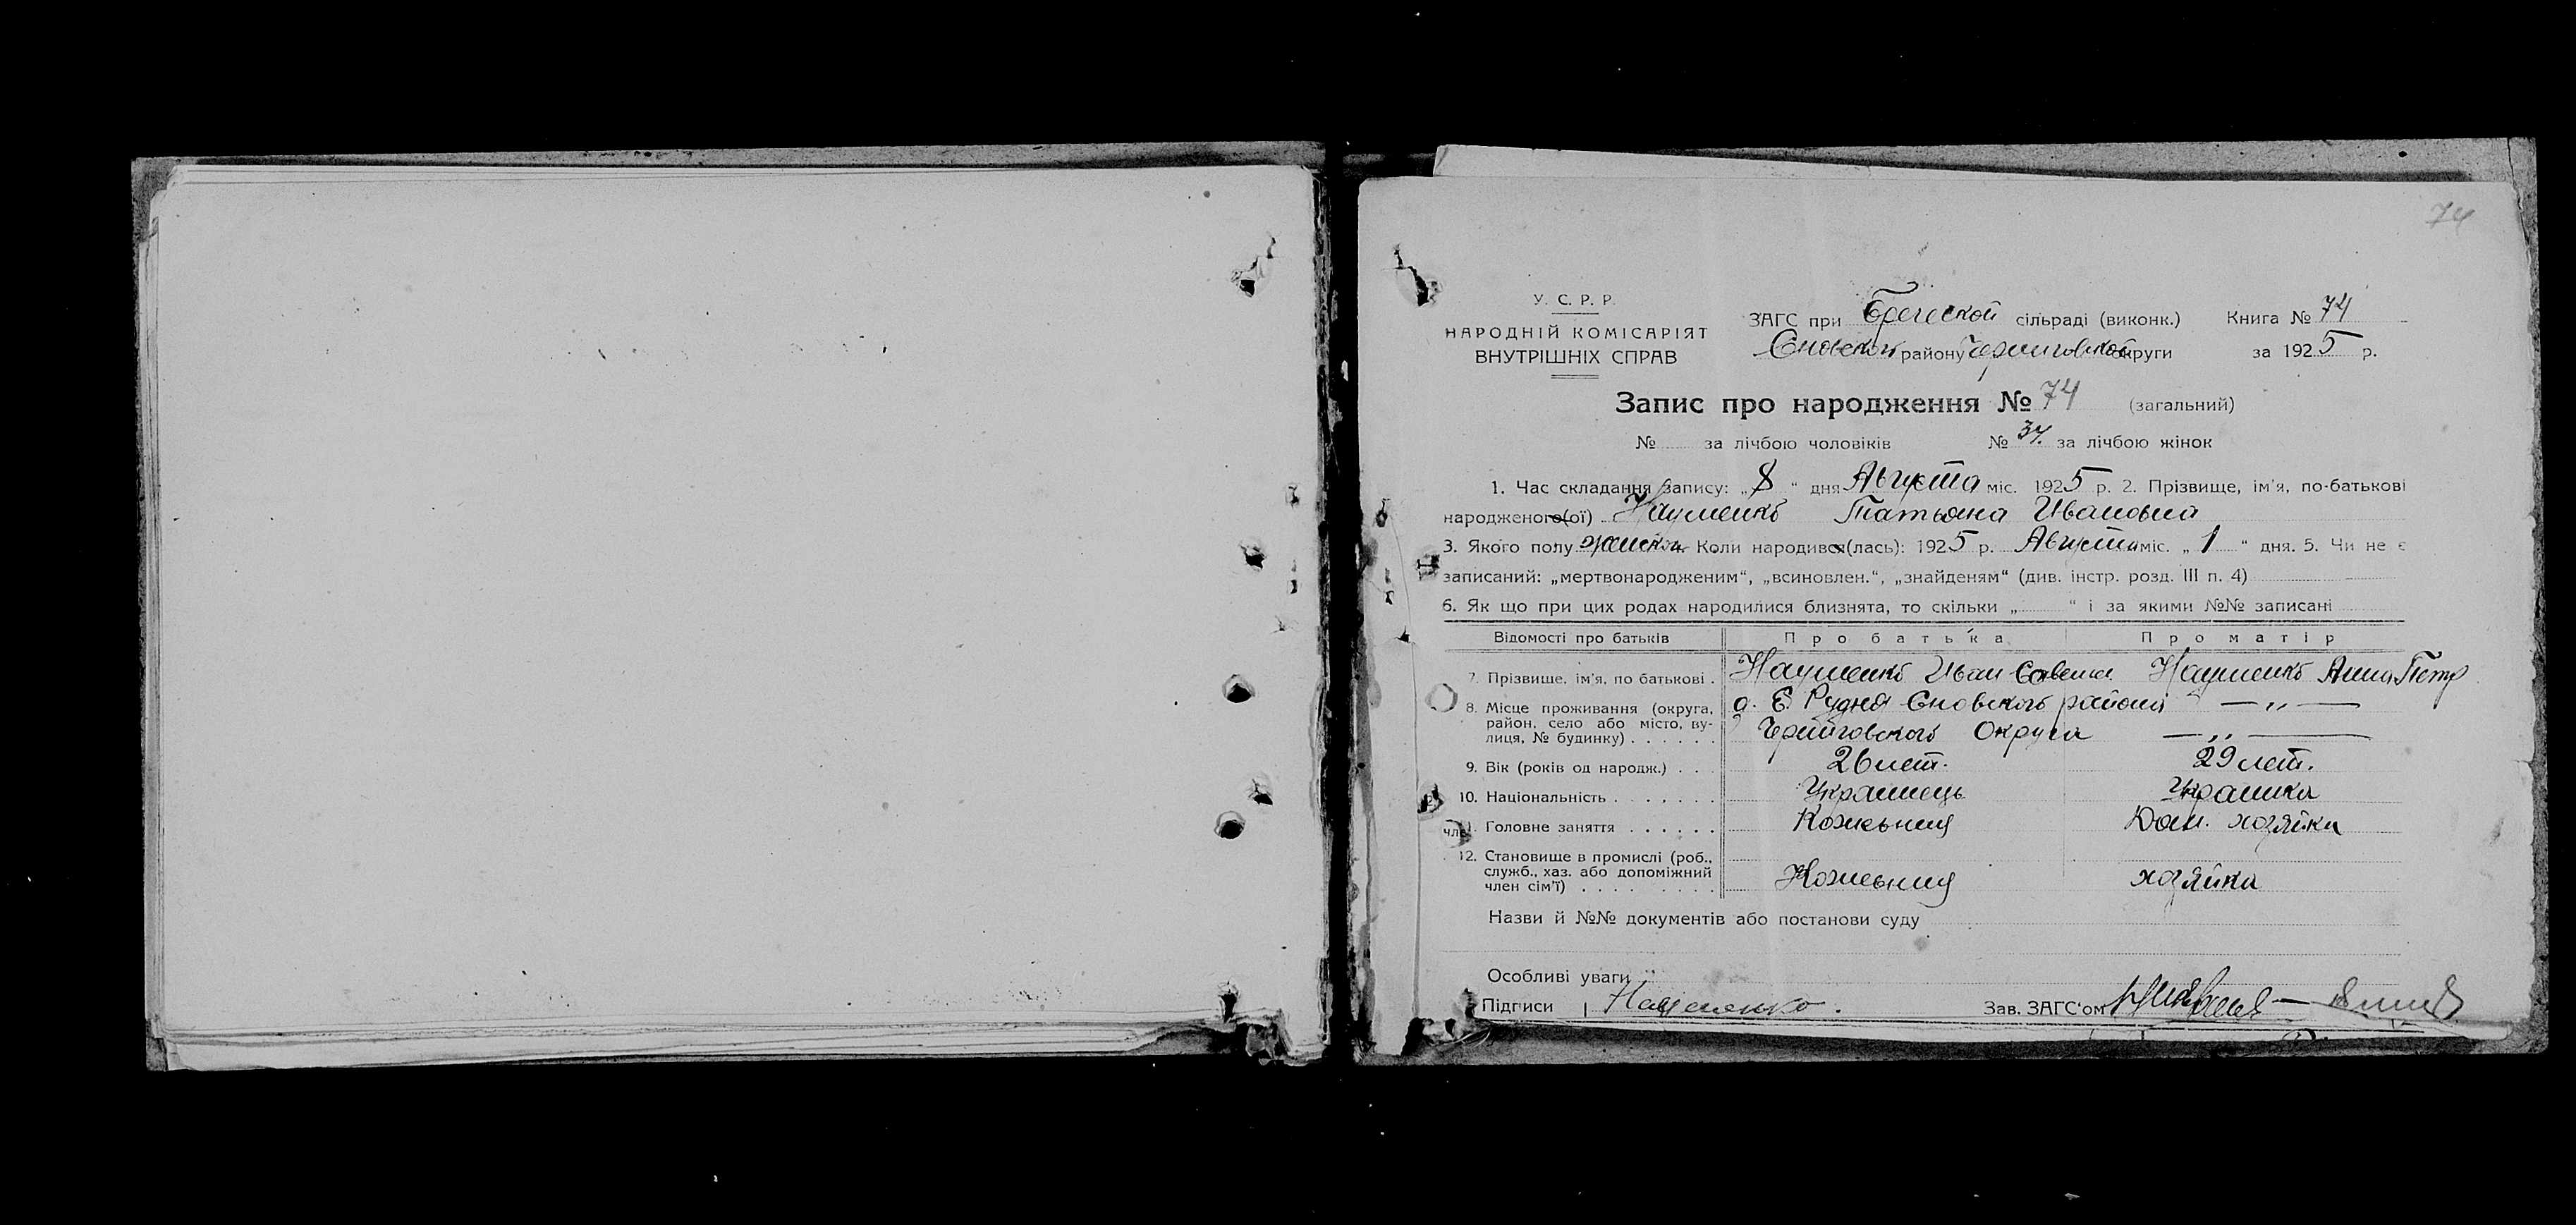 74
У. С. Р. Р.
НАРОДНІЙ КОМІСАРІЯТ
ВНУТРІШНІХ СПРАВ
ЗАГС при Бречской сільраді (виконк.) Книга № 74
Сновского району Черниговской округи за 1925 р.
Запис про народження № 74 (загальний)
№ за лічбою чоловіків № 37. за лічбою жінок
1. Час складання запису: „8“ дня Августа міс. 1925 р. 2. Прізвище, ім'я, по-батькові
народженого(ої) Науменко Татьяна Ивановна
3. Якого полу женск. Коли народився(лась): 1925 р. Августа міс. „1“ дня. 5. Чи не є
записаний: „мертвонародженим“, „всиновлен.“, „знайденям“ (див. інстр. розд. III п. 4)
6. Як що при цих родах народилися близнята, то скільки „ “ і за якими №№ записані
Відомості про батьків Про батька Про матір
7. Прізвище, ім'я, по батькові . Науменко Иван Савела Науменко Анна Петр
8. Місце проживання (округа, район, село або місто, вулиця, № будинку) . . . . . . Е. Рудня Сновского района — „ —
Черниговского Округа — „ —
9. Вік (років од народж.) . . . 26 лет. 29 лет.
10. Національність . . . . . . . Украинець Украинка
11. Головне заняття . . . . . . Дом. хозяйка
12. Становище в промислі (роб., служб., хаз. або допоміжний член сім'ї) . . . . . . . . хозяйка
Назви й №№ документів або постанови суду
Особливі уваги
Підписи Науменко. Зав. ЗАГС'ом